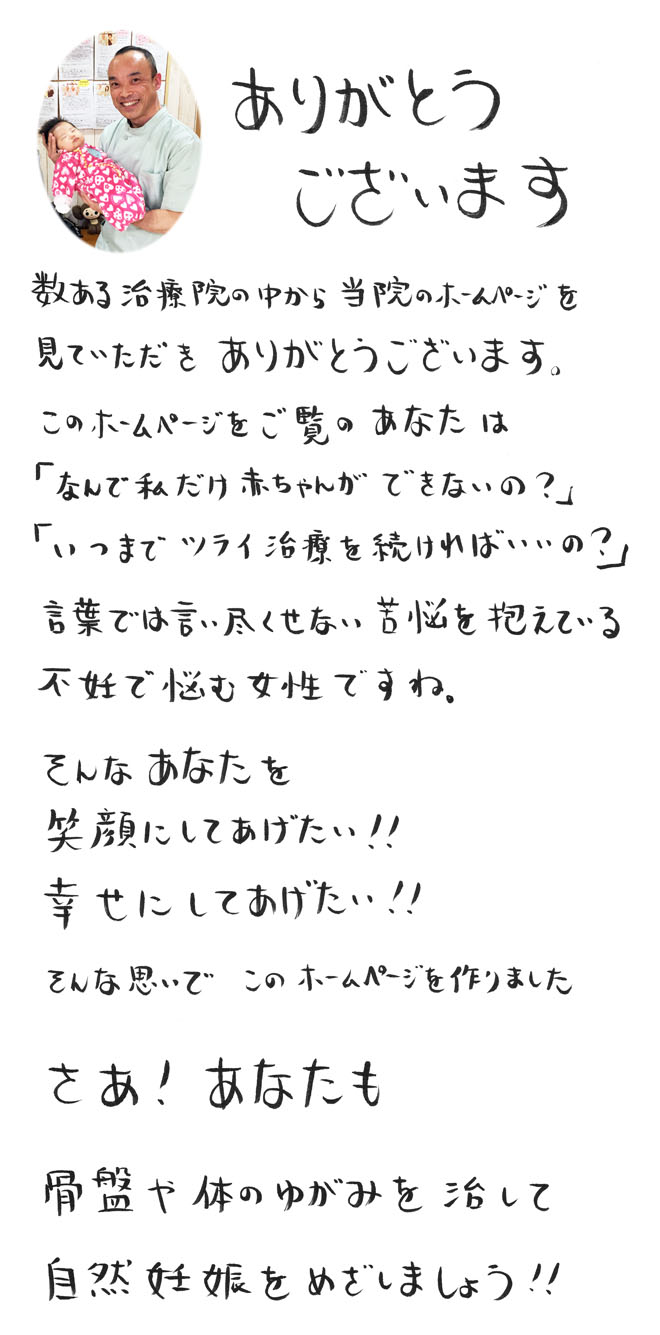 ありがとう
ございます
数ある治療院の中から当院のホームページを
見ていただきありがとうございます。
このホームページをご覧のあなたは
「なんで私だけ赤ちゃんができないの?」
「いつまでツライ治療を続ければいいの?」
言葉では言い尽くせない苦悩を抱えている
不妊で悩む女性ですね。
そんなあなたを
笑顔にしてあげたい!!
幸せにしてあげたい!!
そんな思いでこのホームページを作りました
さあ!あなたも
骨盤や体のゆがみを治して
自然妊娠をめざしましょう!!